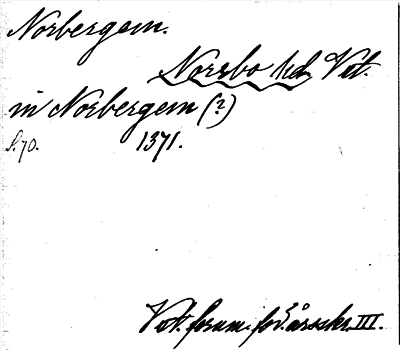 Norbergem.
Norrbo hd Vstl.
in Norbergem (?)
s. 70. 1371.
Vstl. fornm.-för. årsskr. III.